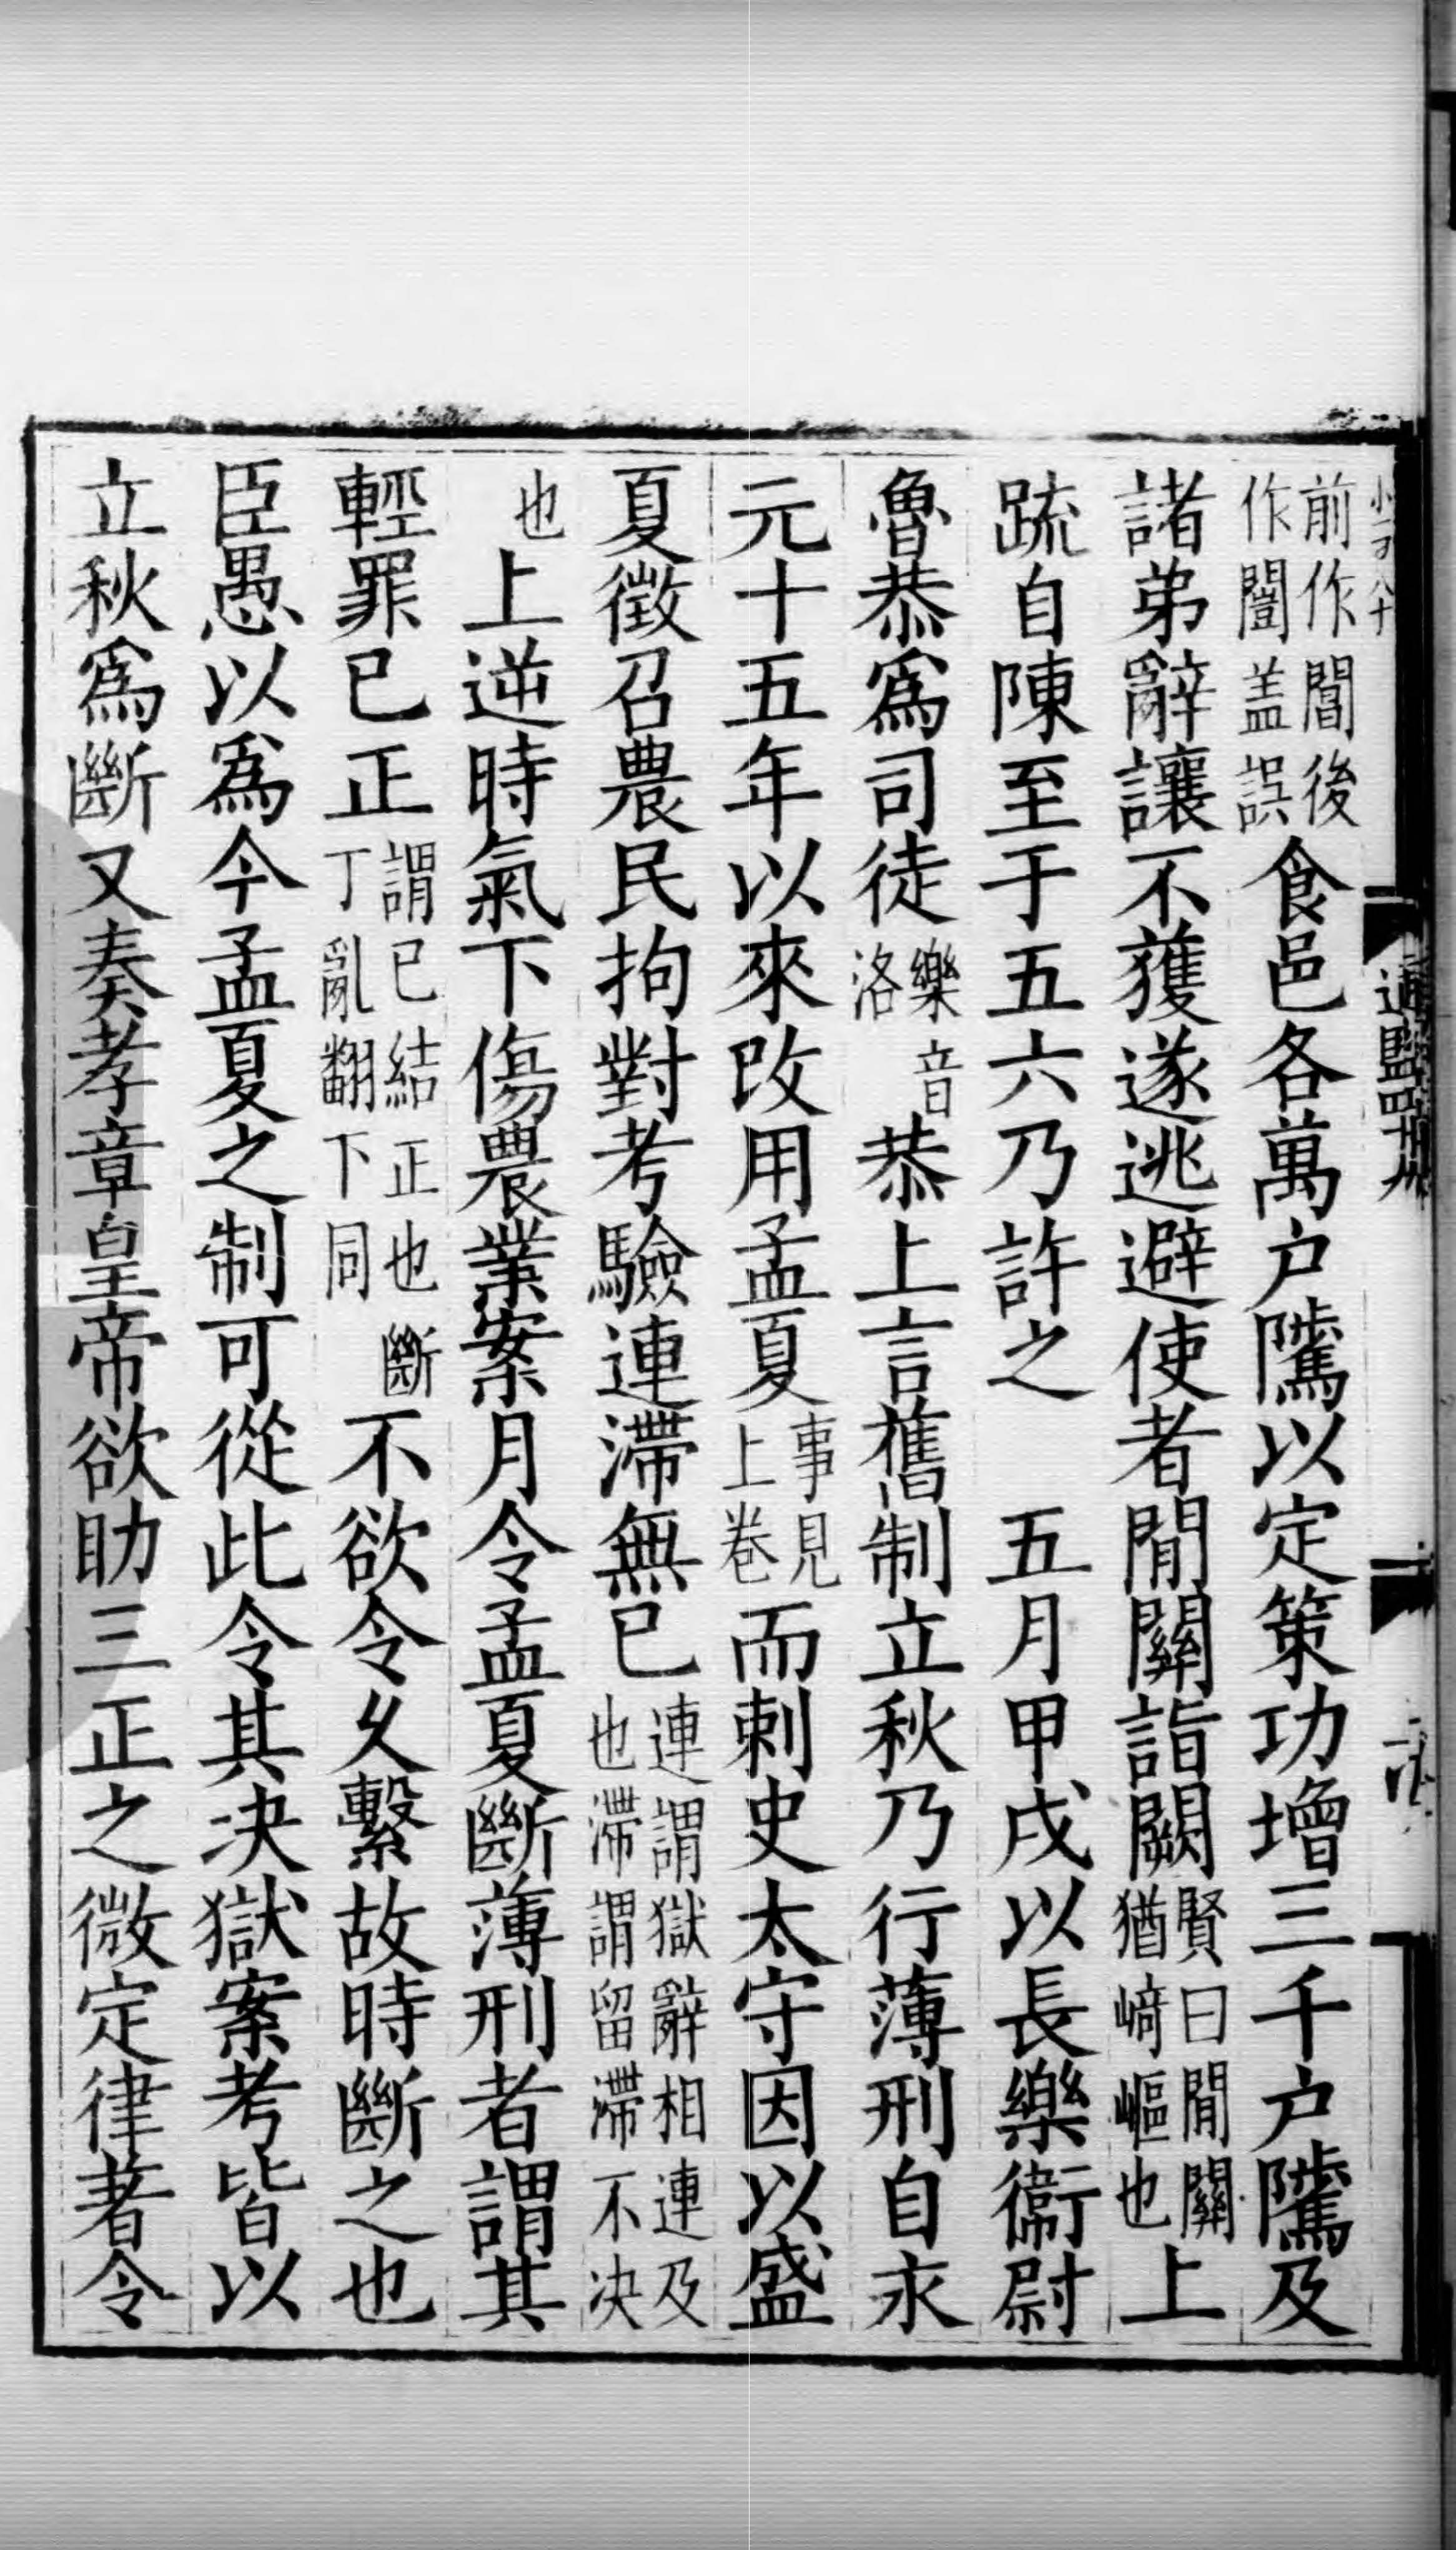 前作閶後作闓盖誤食邑各萬户騭以定策功增三千户騭及
諸弟辭讓不獲遂逃避使者閒關詣闕賢曰閒關猶崎嶇也上
䟽自陳至于五六乃許之　五月甲戌以長樂衞尉
魯恭爲司徒樂音洛恭上言舊制立秋乃行薄刑自永
元十五年以來改用孟夏事見上卷而刺史太守因以盛
夏徵召農民拘對考驗連滯無已連謂獄辭相連及也滯謂留滯不决
也上逆時氣下傷農業案月令孟夏斷薄刑者謂其
輕罪已正謂已結正也斷丁亂翻下同不欲令久繫故時斷之也
臣愚以爲今孟夏之制可從此令其决獄案考皆以
立秋爲斷又奏孝章皇帝欲助三正之微定律著令
通鑑四十九